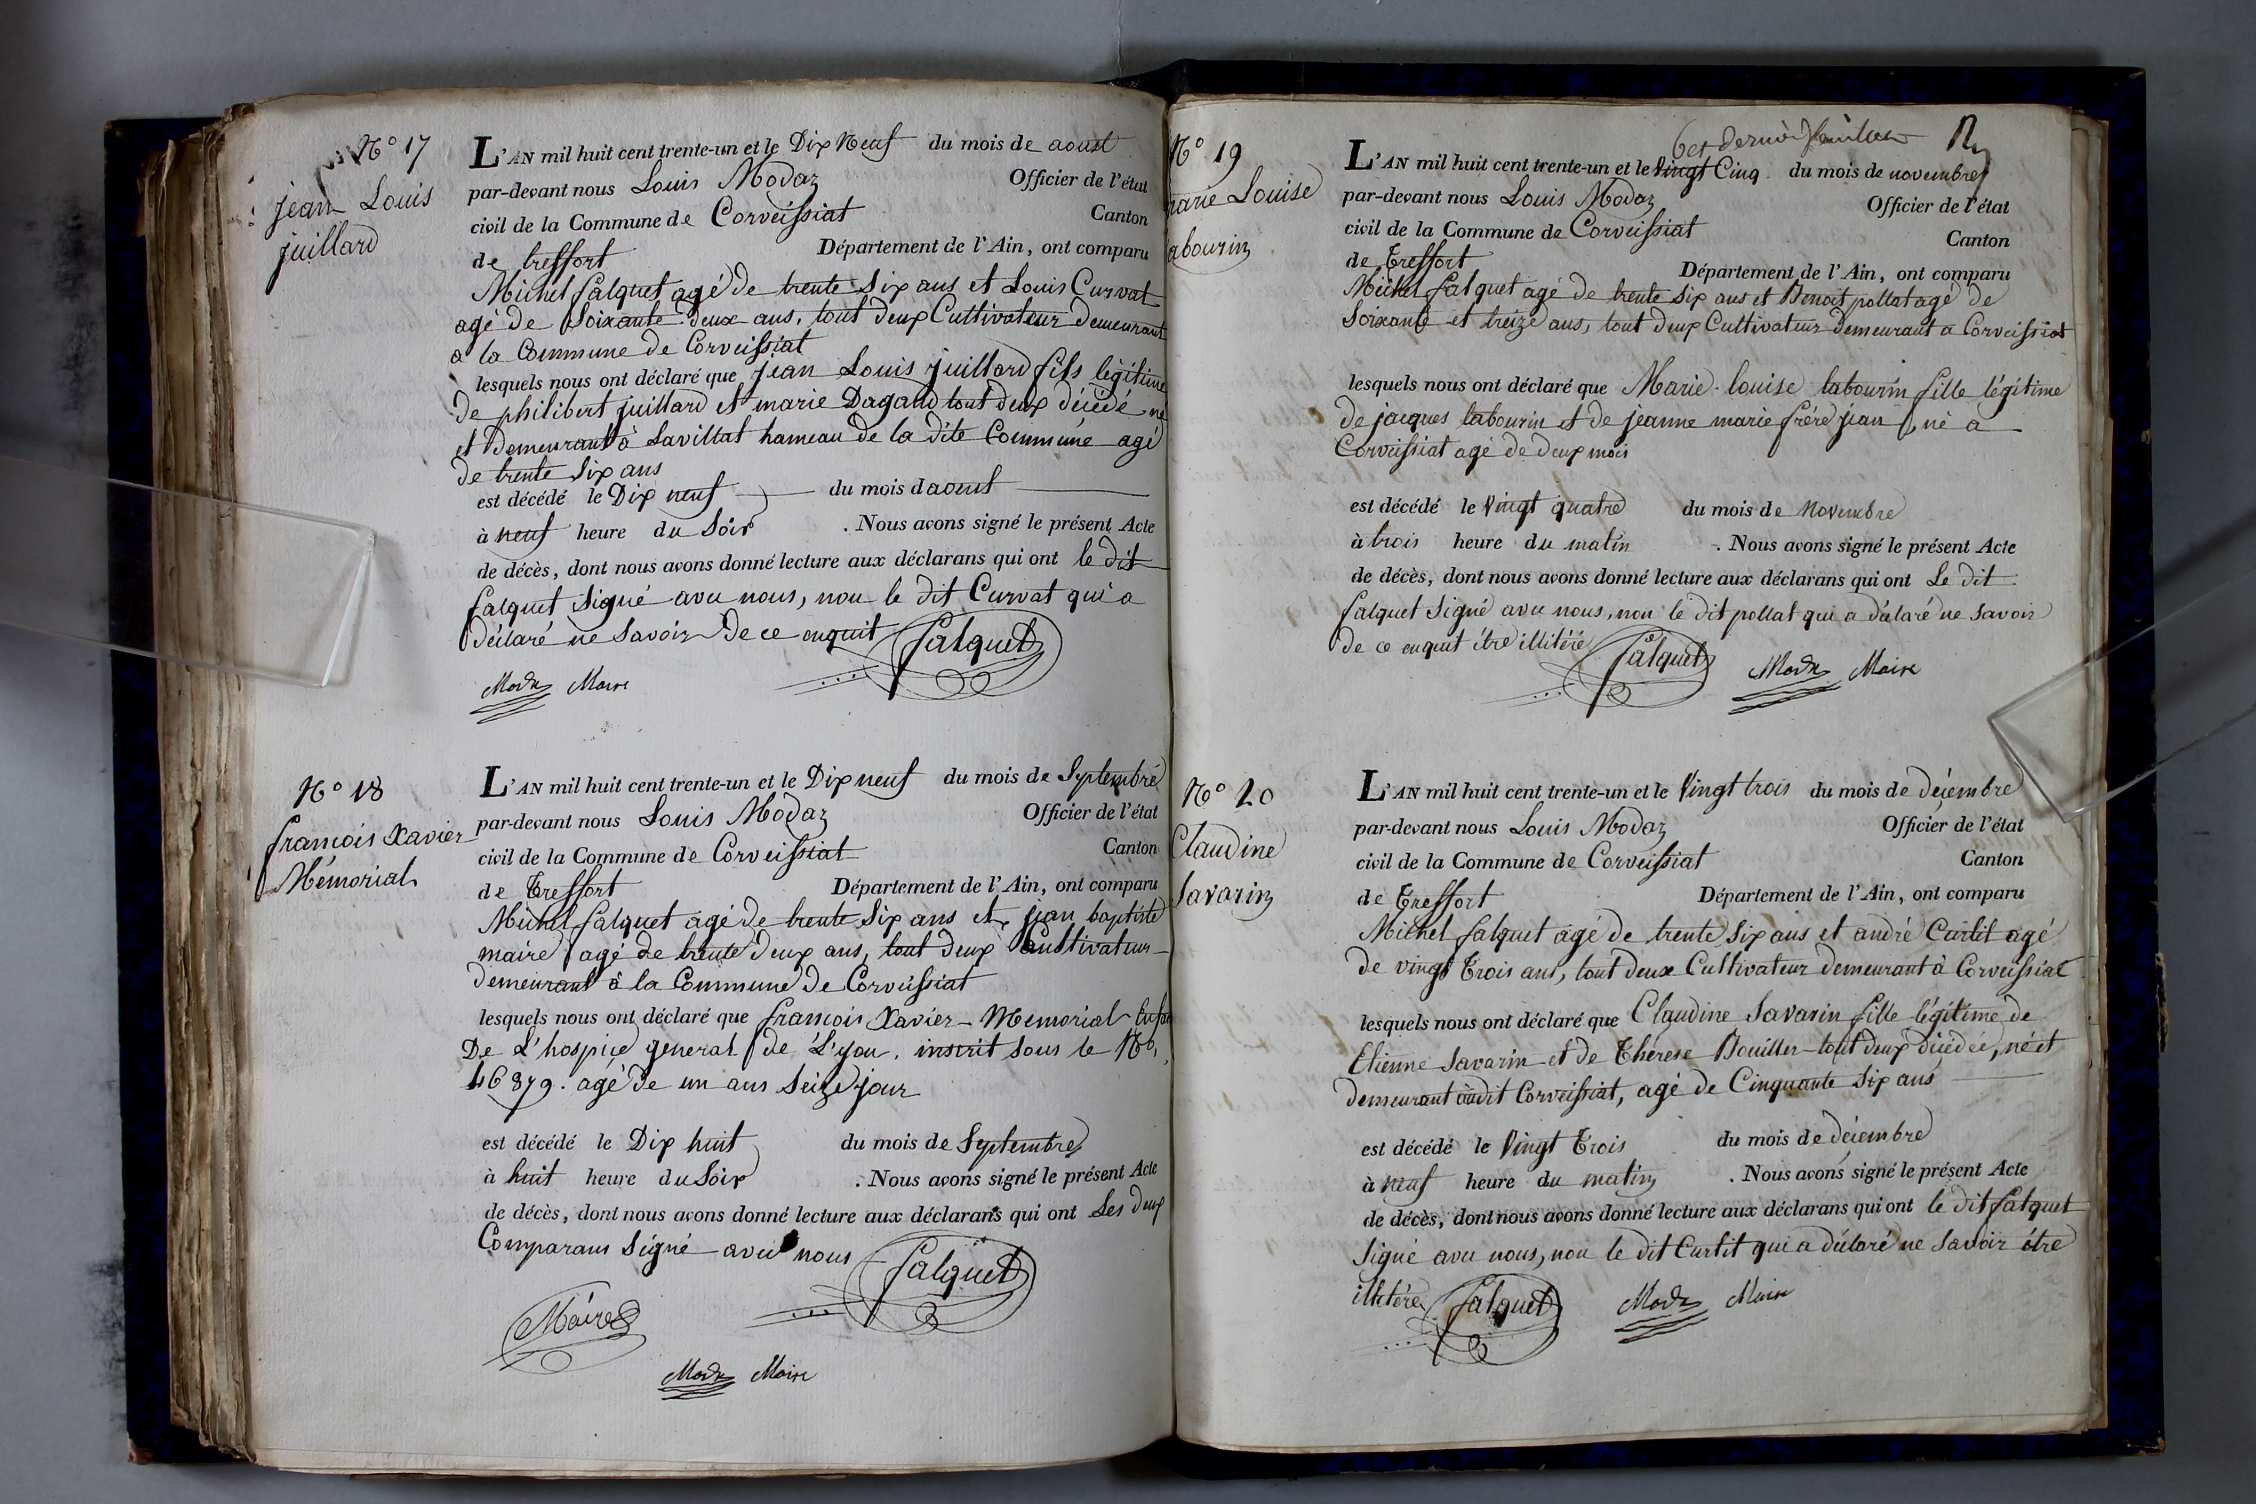 N° 17
jean Louis
juillard
L'AN mil huit cent trente-un et le Dix Neuf du mois de aoust
par-devant nous Louis Modaz Officier de l'état
civil de la Commune de Corveissiat Canton
de treffort Département de l'Ain, ont comparu
Michel falquet agé de trente Six ans et Louis Curvat
agé de Soixante deux ans, tout deux Cultivateur demeurant
a la Commune de Corveissiat
lesquels nous ont déclaré que jean Louis juillard fils légitime
de philibert juillard et marie Dagaud tout deux décédé né
et demeurant à Savillat hameau de la dite Commune agé
de trente Six ans
est décédé le Dix neuf du mois d aoust
à neuf heure du Soir . Nous avons signé le présent Acte
de décès, dont nous avons donné lecture aux déclarans qui ont le dit
falquet Signé avec nous, non le dit Curvat qui a
déclaré ne Savoir de ce enquit falquet
Modaz Maire
N° 18
francois Xavier
Mémorial
L'AN mil huit cent trente-un et le Dix neuf du mois de Septembre
par-devant nous Louis Modaz Officier de l'état
civil de la Commune de Corveissiat Canton
de Treffort Département de l'Ain, ont comparu
Michel falquet agé de trente Six ans et jean baptiste
maire agé de trente deux ans, tout deux Cultivateur
demeurant à la Commune de Corveissiat
lesquels nous ont déclaré que francois Xavier Memorial
De L'hospice general de L'yon, inscrit sous le No,
46879. agé de un ans Seize jour
est décédé le Dix huit du mois de Septembre
à huit heure du Soir . Nous avons signé le présent Acte
de décès, dont nous avons donné lecture aux déclarans qui ont Les deux
Comparans Signé avec nous falquet
Maire
Modaz Maire
6e et dernier feuillet
N° 19
marie Louise
labourin
L'AN mil huit cent trente-un et le vingt Cinq du mois de novembre
par-devant nous Louis Modaz Officier de l'état
civil de la Commune de Corveissiat Canton
de Treffort Département de l'Ain, ont comparu
Michel falquet agé de trente Six ans et Benoit pollat agé de
Soixante et treize ans, tout deux Cultivateur demeurant a Corveissiat
lesquels nous ont déclaré que Marie-louise labourin fille légitime
de jacques labourin et de jeanne marie frére jean, né a
Corveissiat agé de deux mois
est décédé le Vingt quatre du mois de Novembre
à trois heure du matin . Nous avons signé le présent Acte
de décès, dont nous avons donné lecture aux déclarans qui ont Le dit
falquet Signé avec nous, non le dit pollat qui a déclaré ne Savoir
de ce enquit étre illitéré falquet Modaz Maire
N° 20
Claudine
Savarin
L'AN mil huit cent trente-un et le Vingt trois du mois de décembre
par-devant nous Louis Modaz Officier de l'état
civil de la Commune de Corveissiat Canton
de Treffort Département de l'Ain, ont comparu
Michel falquet agé de trente Six ans et andré Curtit agé
de vingt Trois ans, tout deux Cultivateur demeurant à Corveissiat
lesquels nous ont déclaré que Claudine Savarin fille légitime de
Etienne Savarin et de Thérese Bouiller tout deux décédée, né et
demeurant audit Corveissiat, agé de Cinquante Six ans
est décédé le Vingt Trois du mois de décembre
à neuf heure du matin . Nous avons signé le présent Acte
de décès, dont nous avons donné lecture aux déclarans qui ont le dit falquet
Signé avec nous, non le dit Curtit qui a déclaré ne Savoir étre
illetéré falquet Modaz Maire